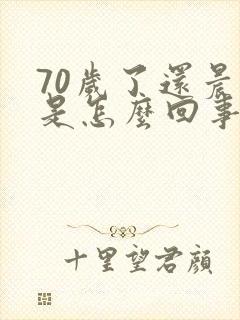 70歲了還晨
是怎麼回事
十里望君顏